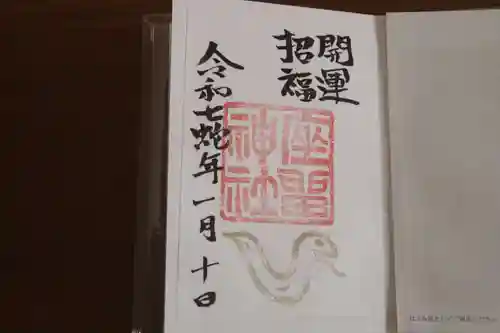 開運
招福
座聖
神社
令和七蛇年一月十日